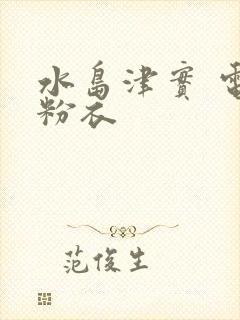 水島津實 電
粉衣
范俊生